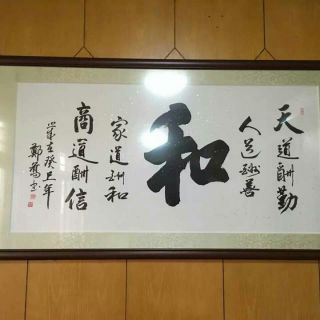 天道酬勤
人道酬善
和
家道酬和
商道酬信
岁在癸卫年